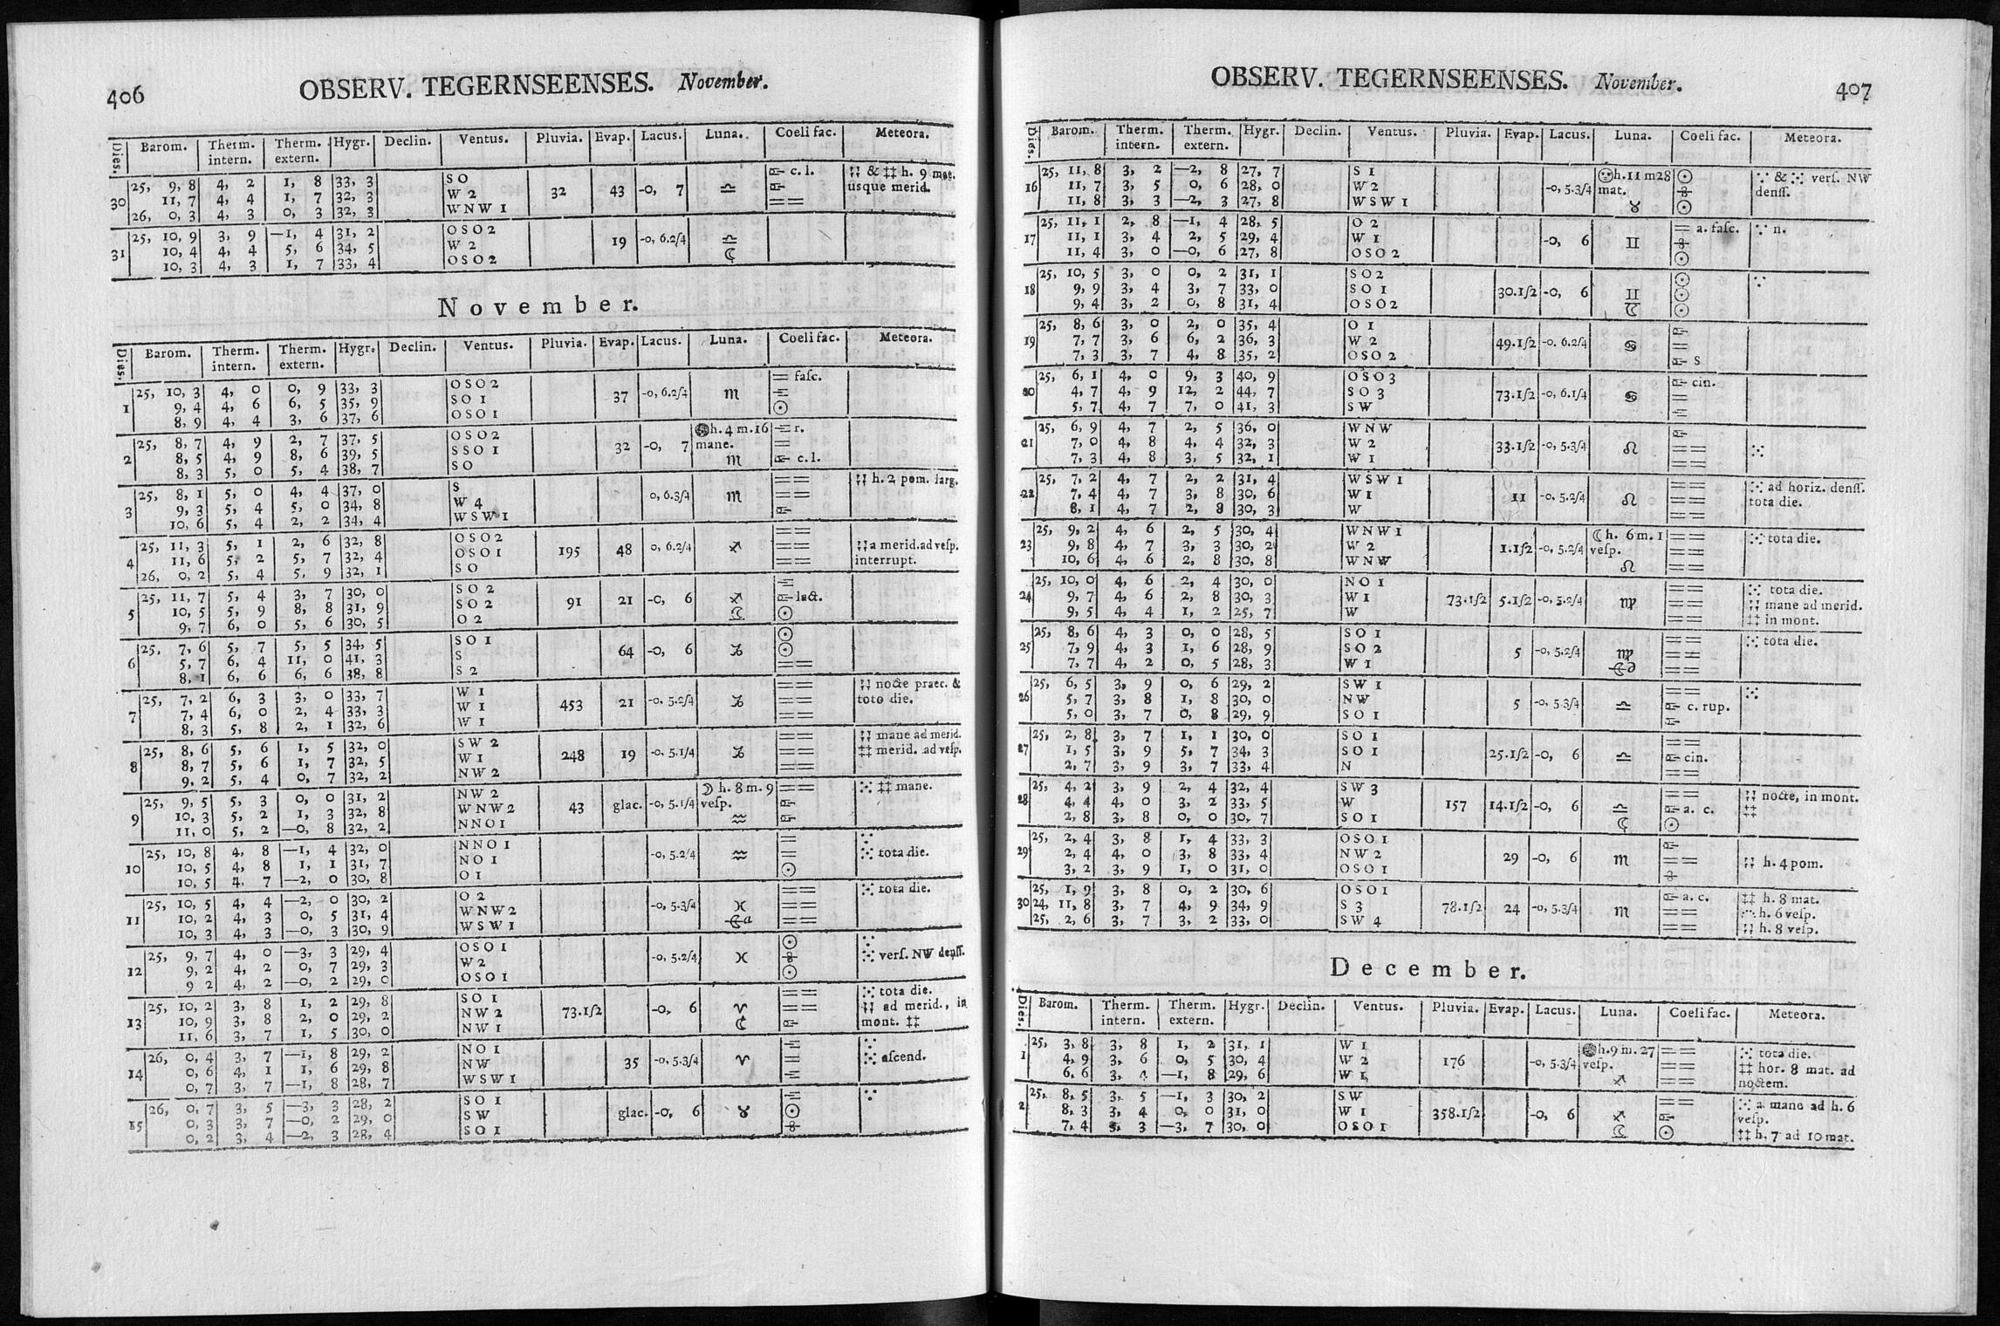 406
OBSERV. TEGERNSEENSES. November.
Dies. Barom. Therm. intern. Therm. extern. Hygr. Declin. Ventus. Pluvia. Evap. Lacus. Luna. Coeli fac. Meteora.
30 25, 9, 8 4, 2 1, 8 33, 3 S O c. l. h. 9 mat.
11, 7 4, 4 1, 7 32, 3 W 2 32 43 -0, 7 ♎ usque merid.
26, 0, 3 4, 3 0, 3 32, 3 W N W 1 ==
31 25, 10, 9 3, 9 —1, 4 31, 2 O S O 2
10, 4 4, 4 5, 6 34, 5 W 2 19 -0, 6.2/4 ♎
10, 3 4, 3 1, 7 33, 4 O S O 2 ☾
November.
Dies. Barom. Therm. intern. Therm. extern. Hygr. Declin. Ventus. Pluvia. Evap. Lacus. Luna. Coeli fac. Meteora.
1 25, 10, 3 4, 0 0, 9 33, 3 O S O 2 == fasc.
9, 4 4, 6 6, 5 35, 9 S O 1 37 -0, 6.2/4 ♏
8, 9 4, 4 3, 6 37, 6 O S O 1 ☉
2 25, 8, 7 4, 9 2, 7 37, 5 O S O 2 h. 4 m. 16 r.
8, 5 4, 9 8, 6 39, 5 S S O 1 32 -0, 7 mane. =
8, 3 5, 0 5, 4 38, 7 S O ♏ c. l.
3 25, 8, 1 5, 0 4, 4 37, 0 S == h. 2 pom. larg.
9, 3 5, 4 5, 0 34, 8 W 4 0, 6.3/4 ♏ ==
10, 6 5, 4 2, 2 34, 4 W S W 1
4 25, 11, 3 5, 1 2, 6 32, 8 O S O 2 ==
11, 6 5, 2 5, 7 32, 4 O S O 1 195 48 0, 6.2/4 ♐ == a merid. ad vesp.
26, 0, 2 5, 4 5, 9 32, 1 S O == interrupt.
5 25, 11, 7 5, 4 3, 7 30, 0 S O 2
10, 5 5, 9 8, 8 31, 9 S O 2 91 21 -0, 6 ♐ lact.
9, 7 6, 0 5, 6 30, 5 O 2 ☾ ☉
6 25, 7, 6 5, 7 5, 5 34, 5 S O 1 ☉
5, 7 6, 4 11, 0 41, 3 S 64 -0, 6 ♑ ☉
8, 1 6, 6 6, 6 38, 8 S 2 ==
7 25, 7, 2 6, 3 3, 0 33, 7 W 1 == nocte praec. &
7, 4 6, 0 2, 4 33, 3 W 1 453 21 -0, 5.2/4 ♑ == toto die.
8, 3 5, 8 2, 1 32, 6 W 1 ==
8 25, 8, 6 5, 6 1, 5 32, 0 S W 2 == mane ad merid.
8, 7 5, 6 1, 7 32, 5 W 1 248 19 -0, 5.1/4 ♑ == merid. ad vesp.
9, 2 5, 4 0, 7 32, 2 N W 2 ==
9 25, 9, 5 5, 3 0, 0 31, 2 N W 2 ☽ h. 8 m. 9 == mane.
10, 3 5, 2 1, 3 32, 8 W N W 2 43 glac. -0, 5.1/4 vesp.
11, 0 5, 2 —0, 8 32, 2 N N O 1 ♒
10 25, 10, 8 4, 8 —1, 4 32, 0 N N O 1 =
10, 5 4, 8 1, 1 31, 7 N O 1 -0, 5.2/4 ♒ = tota die.
10, 5 4, 7 —2, 0 30, 8 O 1 ☉
11 25, 10, 5 4, 4 —2, 0 30, 2 O 2 == tota die.
10, 2 4, 3 0, 5 31, 4 W N W 2 -0, 5.3/4 ♓ ==
10, 3 4, 3 —0, 3 30, 9 W S W 1 ☾a ==
12 25, 9, 7 4, 0 —3, 3 29, 4 O S O 1 ☉
9, 2 4, 2 0, 7 29, 3 W 2 -0, 5.2/4 ♓ vers. NW denss.
9 2 4, 2 —0, 2 29, 0 O S O 1 ☉
13 25, 10, 2 3, 8 1, 2 29, 8 S O 1 == tota die.
10, 9 3, 8 2, 0 29, 2 N W 2 73.1/2 -0, 6 ♈ == ad merid., in
11, 6 3, 7 1, 5 30, 0 N W 1 ☾ mont.
14 26, 0, 4 3, 7 —1, 8 29, 2 N O 1
0, 6 4, 1 1, 6 29, 8 N W 35 -0, 5.3/4 ♈ = ascend.
0, 7 3, 7 —1, 8 28, 7 W S W 1
15 26, 0, 7 3, 5 —3, 3 28, 2 S O 1
0, 3 3, 7 —0, 2 29, 0 S W glac. -0, 6 ♉ ☉
0, 2 3, 4 —2, 3 28, 4 S O 1
407
OBSERV. TEGERNSEENSES. November.
Dies. Barom. Therm. intern. Therm. extern. Hygr. Declin. Ventus. Pluvia. Evap. Lacus. Luna. Coeli fac. Meteora.
16 25, 11, 8 3, 2 —2, 8 27, 7 S 1 h. 11 m 28 ☉ & vers. NW
11, 7 3, 5 0, 6 28, 0 W 2 -0, 5.3/4 mat. denss.
11, 8 3, 3 —2, 3 27, 8 W S W 1 ♉ ☉
17 25, 11, 1 2, 8 —1, 4 28, 5 O 2 = a. fasc. n.
11, 1 3, 4 2, 5 29, 4 W 1 -0, 6 ♊
11, 4 3, 0 —0, 6 27, 8 O S O 2 ☉
18 25, 10, 5 3, 0 0, 2 31, 1 S O 2 ☉
9, 9 3, 4 3, 7 33, 0 S O 1 30.1/2 -0, 6 ♊ ☉
9, 4 3, 2 0, 8 31, 4 O S O 2 ☾ ☉
19 25, 8, 6 3, 0 2, 0 35, 4 O 1
7, 7 3, 6 6, 2 36, 3 W 2 49.1/2 -0. 6.2/4 ♋ =
7, 3 3, 7 4, 8 35, 2 O S O 2 S
20 25, 6, 1 4, 0 9, 3 40, 9 O S O 3 cin.
4, 7 4, 9 12, 2 44, 7 S O 3 73.1/2 -0, 6.1/4 ♋ =
5, 7 4, 7 7, 0 41, 3 S W
21 25, 6, 9 4, 7 2, 5 36, 0 W N W
7, 0 4, 8 4, 4 32, 3 W 2 33.1/2 -0, 5.3/4 ♌ ==
7, 3 4, 8 3, 5 32, 1 W 1 ==
22 25, 7, 2 4, 7 2, 2 31, 4 W S W 1 == ad horiz. denss.
7, 4 4, 7 3, 8 30, 6 W 1 11 -0, 5.2/4 ♌ == tota die.
8, 1 4, 7 2, 8 30, 3 W ==
23 25, 9, 2 4, 6 2, 5 30, 4 W N W 1 ☾ h. 6 m. 1 == tota die.
9, 8 4, 7 3, 3 30, 2 W 2 1.1/2 -0, 5.2/4 vesp. ==
10, 6 4, 6 2, 8 30, 8 W N W ♌ ==
24 25, 10, 0 4, 6 2, 4 30, 0 N O 1 == tota die.
9, 7 4, 6 2, 8 30, 3 W 1 73.1/2 5.1/2 -0, 5.2/4 ♍ == mane ad merid.
9, 5 4, 4 1, 2 25, 7 W == in mont.
25 25, 8, 6 4, 3 0, 0 28, 5 S O 1 == tota die.
7, 9 4, 3 1, 6 28, 9 S O 2 5 -0, 5.2/4 ♍ ==
7, 7 4, 2 0, 5 28, 3 W 1 ==
26 25, 6, 5 3, 9 0, 6 29, 2 S W 1 ==
5, 7 3, 8 1, 8 30, 0 N W 5 -0, 5 3/4 ♎ c. rup.
5, 0 3, 7 0, 8 29, 9 S O 1
27 25, 2, 8 3, 7 1, 1 30, 0 S O 1 ==
1, 5 3, 9 5, 7 34, 3 S O 1 25.1/2 -0, 6 ♎ cin.
2, 7 3, 9 3, 7 33, 4 N ==
28 25, 4, 2 3, 9 2, 4 32, 4 S W 3 == nocte, in mont.
4, 4 4, 0 3, 2 33, 5 W 157 14.1/2 -0, 6 ♎ a. c.
2, 8 3, 8 0, 0 30, 7 S O 1 ☾ ☉
29 25, 2, 4 3, 8 1, 4 33, 3 O S O 1
2, 4 4, 0 3, 8 33, 4 N W 2 29 -0, 6 ♏ == h. 4 pom.
3, 2 3, 9 1, 0 31, 0 O S O 1
30 25, 1, 9 3, 8 0, 2 30, 6 O S O 1 a. c. h. 8 mat.
24, 11, 8 3, 7 4, 9 34, 9 S 3 78.1/2 24 -0, 5.3/4 ♏ == h. 6 vesp.
25, 2, 6 3, 7 3, 2 33, 0 S W 4 == h. 8 vesp.
December.
Dies. Barom. Therm. intern. Therm. extern. Hygr. Declin. Ventus. Pluvia. Evap. Lacus. Luna. Coeli fac. Meteora.
1 25, 3, 8 3, 8 1, 2 31, 1 W 1 h. 9 m. 27 == tota die.
4, 9 3, 6 0, 5 30, 4 W 2 176 -0, 5.3/4 vesp. == hor. 8 mat. ad
6, 6 3, 4 —1, 8 29, 6 W 1 ♐ == noctem.
2 25, 8, 5 3, 5 —1, 3 30, 2 S W == a mane ad h. 6
8, 3 3, 4 0, 0 31, 0 W 1 358.1/2 -0, 6 ♐ vesp.
7, 4 3, 3 —3, 7 30, 0 O S O 1 ☾ ☉ h. 7 ad 10 mat.